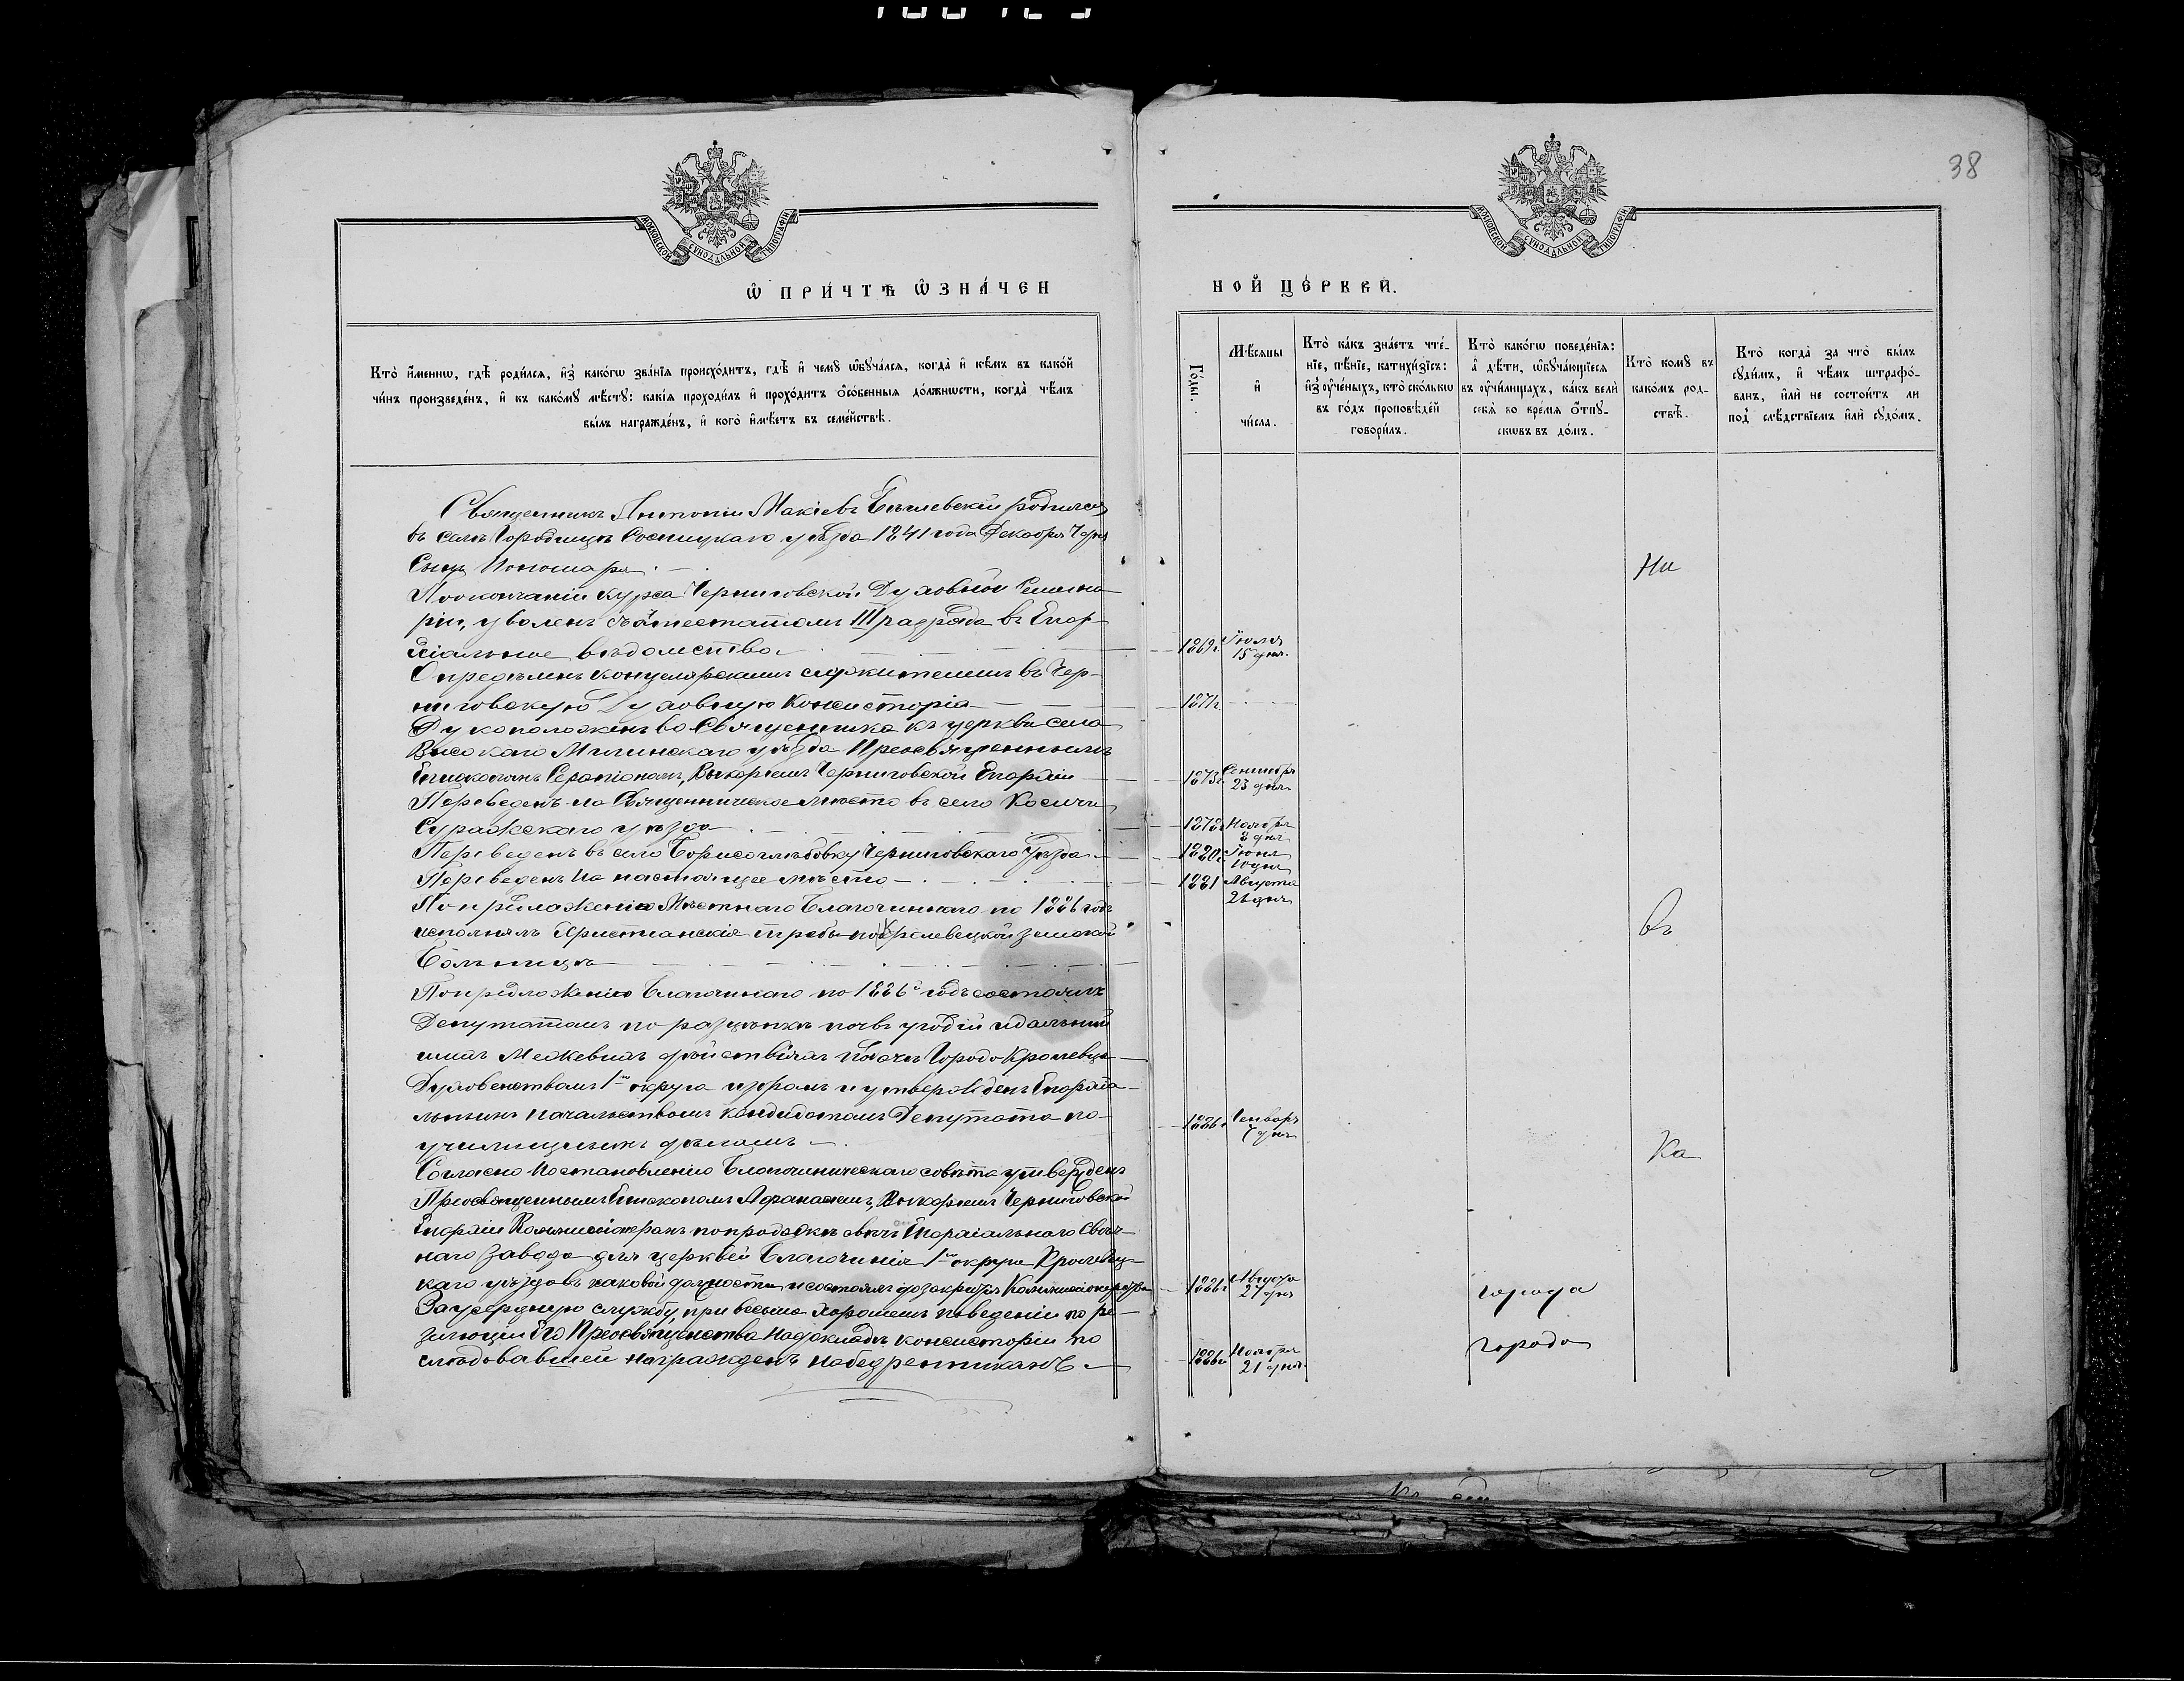 38
МОСКОВСКОЙ СУНОДАЛЬНОЙ ТИПОГРАФІИ
МОСКОВСКОЙ СУНОДАЛЬНОЙ ТИПОГРАФІИ
Ѡ ПРИ́ЧТѢ ѠЗНА́ЧЕН
НОЙ ЦЕ́РКВИ.
Кто̀ и҆́менно, гдѣ̀ роди́лсѧ, и҆з̾ како́гѡ зва́нїѧ происхо́дитъ, гдѣ̀ и҆ чемꙋ̀ ѡ҆бꙋча́лсѧ, когда̀ и҆ кѣ́мъ въ како́й
чи́нъ произведе́нъ, и҆ къ како́мꙋ мѣ́стꙋ: какі́ѧ проходи́лъ и҆ прохо́дитъ ѻ҆со́бенныѧ до́лжнѡсти, когда̀ чѣ́мъ
бы́лъ награжде́нъ, и҆ кого̀ и҆мѣ́етъ въ семе́йствѣ.
Го́ды.
Мѣ́сѧцы
и҆
чи́сла.
Кто̀ ка́къ зна́етъ чте́-
нїе, пѣ́нїе, катихи́зїсъ:
и҆з̾ ᲂу҆че́ныхъ, кто̀ ско́лькѡ
въ го́дъ проповѣ́дей
говори́лъ.
Кто̀ како́гѡ поведе́нїѧ:
а҆ дѣ́ти, ѡ҆бꙋча́ющїесѧ
въ ᲂу҆чи́лищахъ, ка́къ велѝ
себѧ̀ во вре́мѧ ѿпꙋ-
скѡвъ въ до́мъ.
Кто̀ комꙋ̀ въ
како́мъ род-
ствѣ̀.
Кто̀ когда̀ за что̀ бы́лъ
сꙋди́мъ, и҆ чѣ́мъ штрафо́-
ванъ, и҆лѝ не состои́тъ ли
под̾ слѣ́дствїемъ и҆лѝ сꙋдо́мъ.
Священникъ Антоній Макіевъ родился
въ селѣ Городищѣ Сосницкаго уѣзда 1841 года Декабря
Сынъ Пономаря.
По окончаніи курса Черниговской Духовной Семина-
ріи, уволенъ съ аттестатомъ III разряда въ Епар-
хіальное вѣдомство
1869г. Іюля
15 дня.
Опредѣленъ канцелярскимъ служителемъ въ Чер-
ниговскую Духовную Консисторію
1871г.
Рукоположенъ во Священника къ церкви села
Высокаго Мглинскаго уѣзда Преосвященнымъ
Епископомъ Серапіономъ, Викаріемъ Черниговской Епархіи
1873г. Сентября
23 дня
Переведенъ на Священническое мѣсто въ село Косичи
Суражскаго уѣзда
Ноября
3 дня
Переведенъ въ село Борисоглѣбовку Черниговскаго Уѣзда
1880г. Іюня
10 дня
Переведенъ на настоящее мѣсто
1881 Августа
По предложенію Мѣстнаго Благочиннаго по 1886 годъ
исполнялъ Христіанскія требы по Кролевецкой земской
Больницѣ
По предложенію Благочиннаго по 1886й годъ состоялъ
Депутатомъ по
межевыхъ дѣйствіяхъ города Кролевца
Духовенствомъ 1го округа избранъ и утвержденъ Епархіа-
льнымъ Начальствомъ Кандидатомъ Депутата по
училищнымъ дѣламъ
1886г. Генваря
7 дня
Согласно Постановленію Благочинническаго совѣта утвержденъ
Преосвященнымъ Епископомъ Афанасіемъ, Викаріемъ Черниговской
Епархіи Коммиссіонеромъ по продажѣ свѣчъ Епархіальнаго Свѣч-
наго завода для церквей Благочинія 1го округа Кролевец-
каго уѣзда въ каковой должности и состоялъ до закрытія Коммиссіонерства
1886г. Августа
27 дня
За усердную службу, при весьма хорошемъ поведеніи по ре-
золюціи Его Преосвященства на докладѣ консисторіи по
слѣдовавшей награжденъ набедренникомъ
1886г. Ноября
21 дня
Ни
въ
Ка
города
города